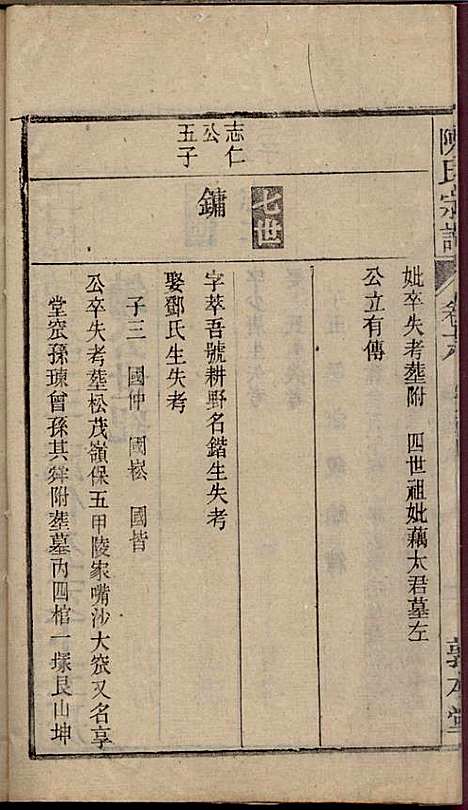 陳氏宗譜
敦本堂
妣卒失考塟附 四世祖妣藕太君墓左
公立有傳
七世
志仁
公
五子
鏞
字萃吾號耕野名鍇生失考
娶鄧氏生失考
子三 國仲 國崧 國皆
公卒失考塟松茂嶺保五甲陵家嘴沙大窊又名享
堂窊孫琜曾孫其舜附塟墓內四棺一塚艮山坤